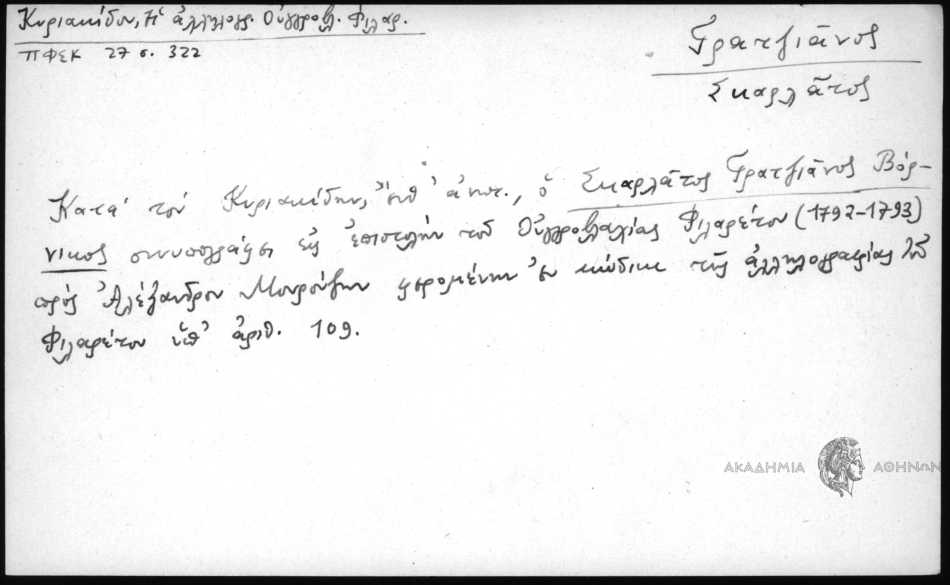 Κυριακίδου, Ἡ ἀλληλογρ. Οὑγγροβλ. Φιλαρ.
ΠΦΣΚ 27 σ. 322
Γρατζιᾶνος
Σκαρλᾶτος
Κατά τόν Κυριακίδην, ἔνθ' ἀνωτ., ὁ Σκαρλᾶτος Γρατζιᾶνος Βόρ-
νικος συνυπογράφει εἰς ἐπιστολήν τοῦ Οὑγγροβλαχίας Φιλαρέτου (1792-1793)
πρός Ἀλέξανδρον Μουρούζην φερομένην ἐν κώδικι τῆς ἀλληλογραφίας τοῦ
Φιλαρέτου ὑπ' ἀριθ. 109.
ΑΚΑΔΗΜΙΑ ΑΘΗΝΩΝ